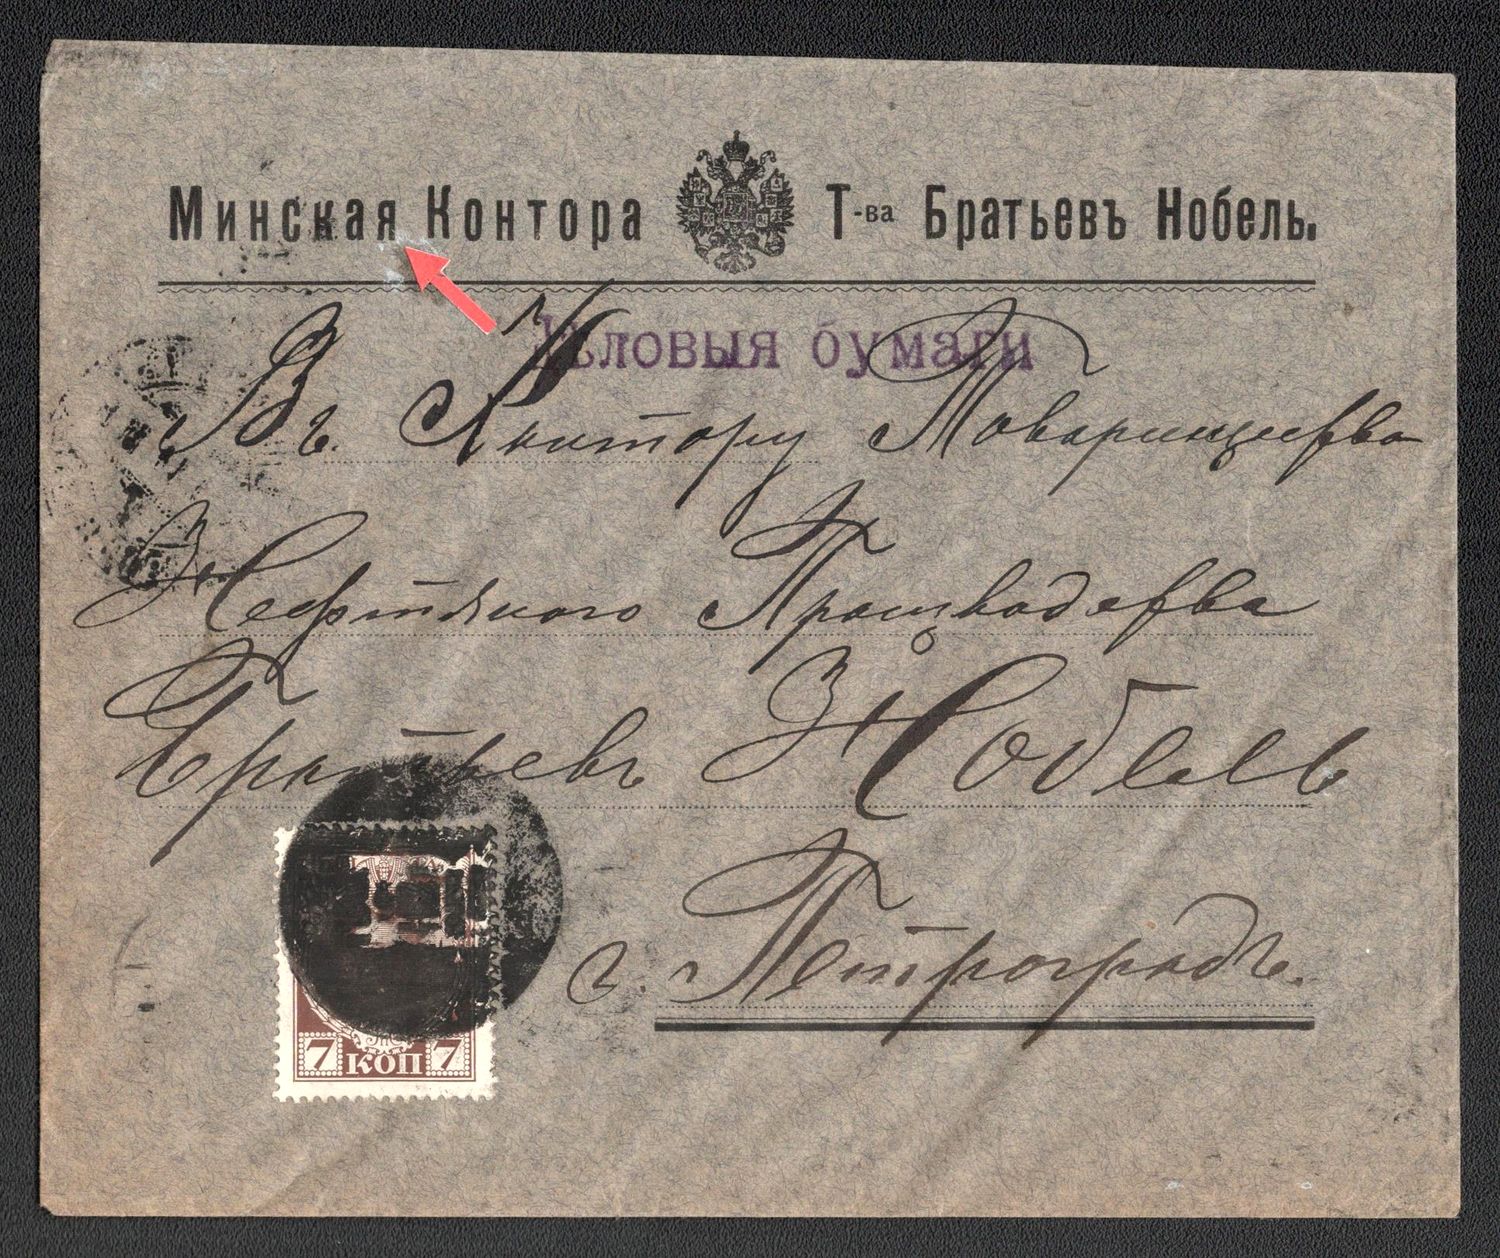 Минская Контора Т-ва Братьевъ Нобель.
Дѣловыя бумаги
Въ Контору Товарищества
Нефтяного Производства
Братьевъ Нобель
г. Петроградъ.
7 КОП 7